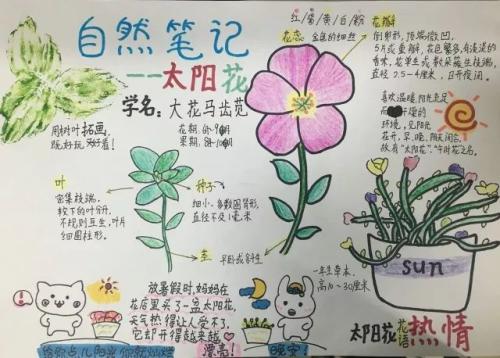 自然笔记
——太阳花
学名：大花马齿苋
花期：6-9月
果期：8-10月
用树叶拓画，
既好玩又好看！
红/紫/黄/白/粉
花蕊 金色的细丝
花瓣
倒卵形，顶端微凹，
5片或重瓣，花色繁多，有淡淡的
香味，花单生或数朵簇生枝端，
直径2.5-4厘米，日开夜闭。
喜欢温暖，阳光充足
环境，见阳光
花开，早、晚、阴天闭合，
故有“太阳花”、“午时花”之名。
叶
密集枝端，
较下的叶分开，
不规则互生，叶片
细圆柱形。
种子
细小，多数圆肾形，
直径不及1毫米
茎 平卧或斜生
一年生草本，
高10～30厘米
sun
放暑假时，妈妈在
花店里买了一盆太阳花，
天气热得让人受不了，
它却开得越来越
给你点儿阳光你就灿烂
漂亮！
晚安！
太阳花花语 热情